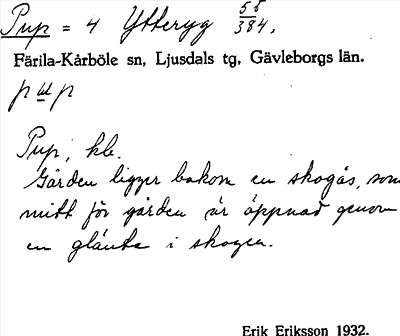 Pup = 4 Ytteryg 55/384.
Färila-Kårböle sn, Ljusdals tg, Gävleborgs län.
pup
Pup, kb.
Gården ligger bakom en skogås, som
mitt för gården är öppnad genom
en glänta i skogen.
Erik Eriksson 1932.